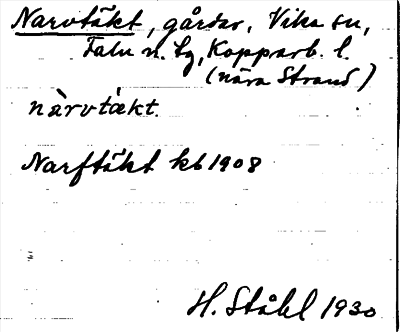 Narvtäkt, gårdar, Vika sn,
Falu n. tg, Kopparb. l.
(nära Strand)
nàrvtækt.
Narftäkt kb 1908
H. Ståhl 1930